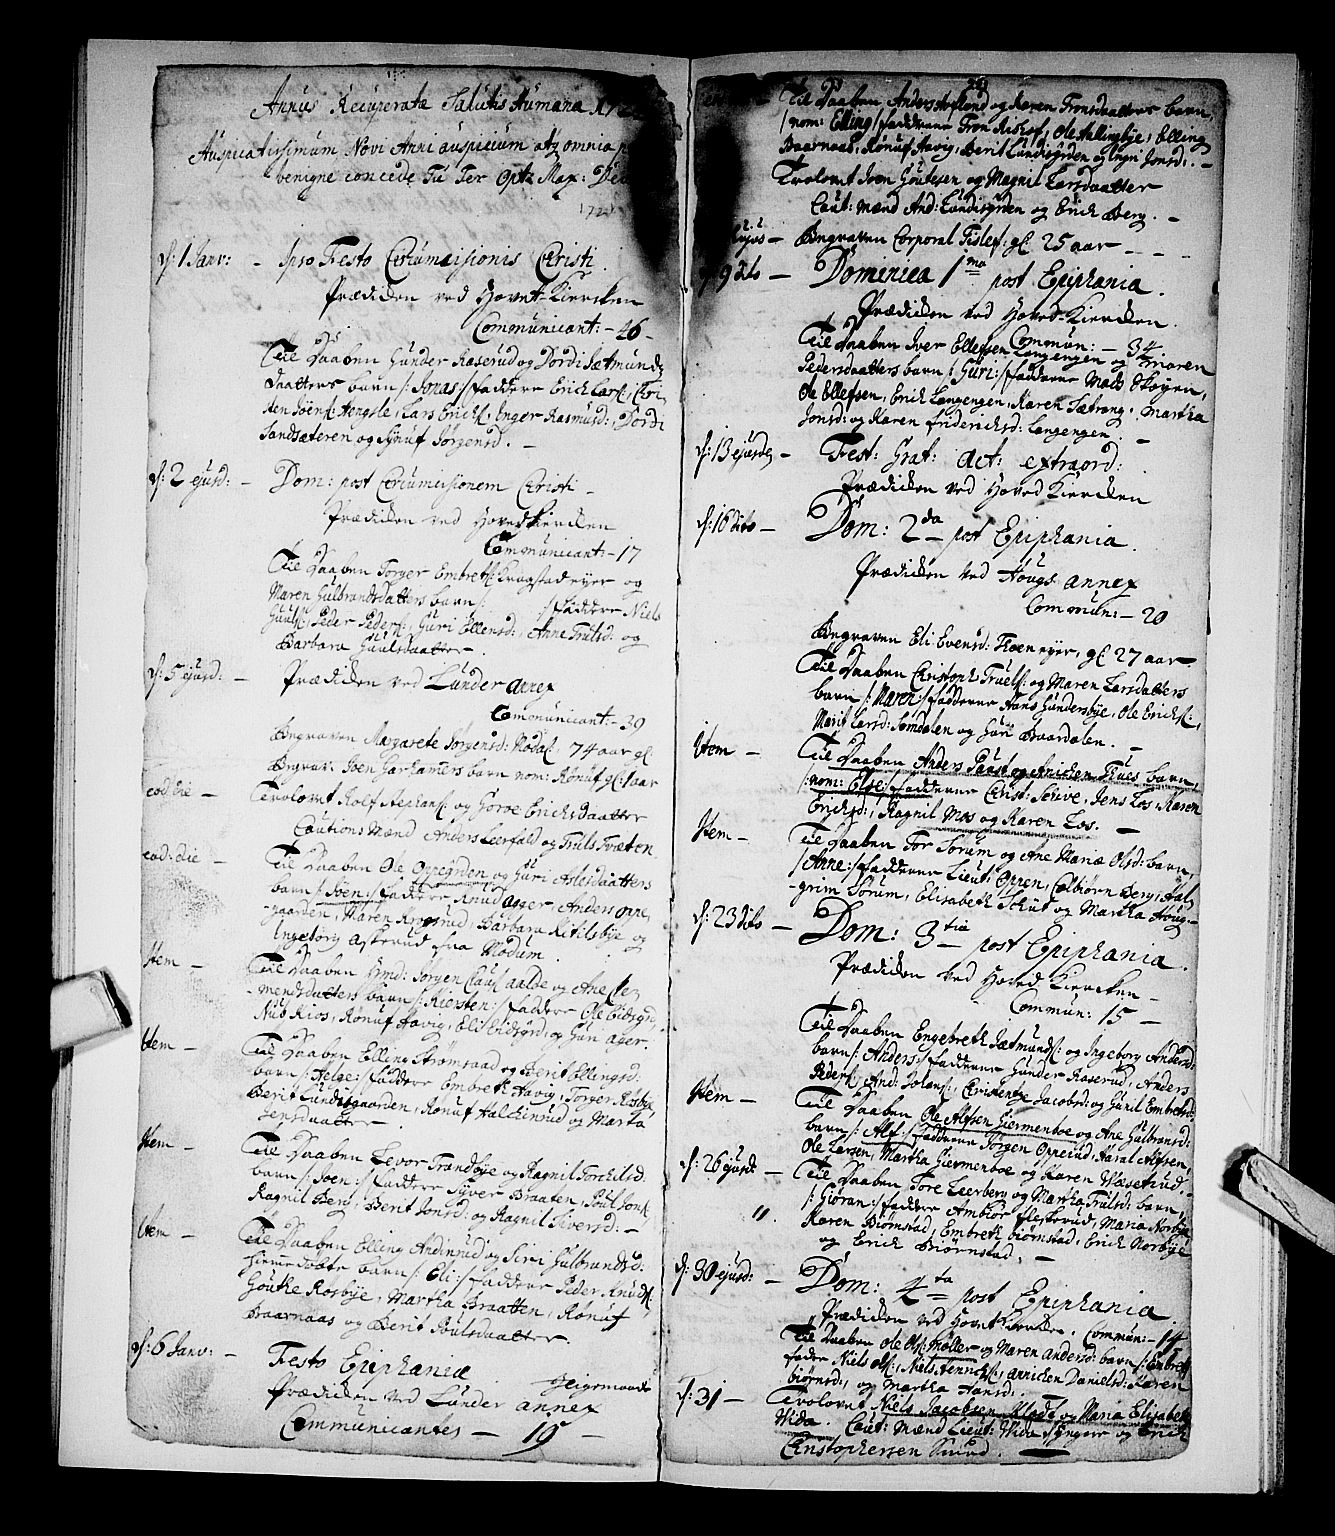 Annus Recuperatæ Salutis Humanæ
Auspicatissimum Novi Anni auspicium atq omnia
benigne concede Tu Ter Opt: Max: Deus
172
d: 1 Janv: - Ipso Festo Circumcisionis Christi.
Prædiken ved Hovet-Kiercken
Communicant: - 46 -
Til Daaben Gunder Raserud og Dordi Sætmunds
daatters barn /: Jonas /: faddere Erich Lars:, Chri-
sten Joens: Hengsle, Lars Erichs:, Inger Rasmusd:, Dordi
Sandsæteren og Synuf Jørgensd. -
d: 2 ejusd: - Dom: post Circumcisionem Christi -
Prædiken ved Hovedkiercken
Communicant: - 17
Til Daaben Torger Embrets: Krogstadeyer og
Maren Gulbrandsdatters barn /: :/ faddere Niels
Guuls:, Peder Peders:, Guri Ellensd:, Anne Truls​d: og
Barbara Guulsdaatter.
d: 5 ejusd: - Prædiken ved Lunder Annex
Communicant: - 39
Begraven Margarete Jørgensd: 74 aar gl:
Begrav: Joen barn nom: Rønuf gl: 1 aar
eod die - Trolovet Rolf og Goroe Ericksdaatter
Cautions Mænd Anders Leerfald og Truls Træten
eod: die - Til Daaben Ole Oppegrden og Guri Aslesdaatters
barn /: Joen :/ faddere Knud Ager, Anders Oppe-
gaarden, Maren Barbara og
Ingeborg Askerud fra Modum.
Item - Til Daaben Jørgen Aalde og Ane Cle-
mendsdatters barn /: Kiersten :/ faddere Ole Eidsgrd,
Rønuf Havig, Eli Eidsgrd og Guri Ager.
Item - Til Daaben Elling Strømsaad og Berit Ellingsd:
barn /: Helge :/ faddere Embreth Havig, Torger Rosbye,
Berit Lundesgaarden, Rønuf Halchinrud og Marta
Jensdaatter.
Item - Til Daaben Levor Trandbye og Ragnil Torchilsd:
barn /: Joen :/ faddere Syver Braaten, Poul Jons:,
Ragnil Berg, Berit Jonsd: og Ragnil Siversd: -
Item - Til Daaben Elling Andinrud og Siri Gulbrandsd:
hiemedøbte barn /: Eli :/ faddere Peder Knuds:,
Goutke Rosbye, Martha Braatten, Rønuf
Baarnaas og Berit Poulsdaatter.
d: 6 Janv: - Festo Epiphaniæ
Prædiken ved Lunder annex
Communicantes - 19
Til Daaben Anders og Karen Tronsdaatters barn
/nom: Elling/ fadderne Tron Rishof, Ole Hallingbye, Elling
Baarnaas, Rønuf Havig, Berit Lundesgrden og Ingri Jonsd: -
Trolovet Iven Goutesen og Magnil Larsdaatter
Caut: Mænd And: Lundesgrden og Erich Berg. -
Begraven Corporal Tislef: gl: 25 aar -
d: 9 dito - Dominica 1ma post Epiphania.
Prædiken ved Hoved-Kiercken.
Commun: - 34
Til Daaben Iver Ellefsen Langengen og Maren
Pedersdaatters barn /: Guri :/ fadderne Mads Skøyen,
Ole Ellefsen, Erich Langengen, Karen Sætrang, Martha
Jonsd: og Karen Friderichsd: Langengen. -
d: 13 ejusdg - Fest: Grat: Act: extraord:
Prædiken ved Hoved Kiercken
d: 16 dito - Dom: 2da post Epiphania.
Prædiken ved Hougs annex
Commun: - 20
Begraven Eli Evensd: Floen eyer, gl: 27 aar -
Til Daaben Christoph Truels: og Maren Larsdatters
barn /: Maren :/ fadderne Hans Gundersbye, Ole Ericks:,
Marit Larsd: Somdalen og Guri Baardalen. -
Item - Til Daaben Anders Paust og Anichen Thues barn,
/nom: Else :/ fadderne Christ: Scrive, Jens Los, Karen
Ericksd:, Ragnil Moe og Karen Los. -
Item - Til Daaben Tor Sorum og Ane Mariæ Olsd: barn,
/: Anne :/ fadderne Lieut: Oppen, Colbiørn Berg, Hal-
grim Sørum, Elisabeth Schut og Martha Houg. -
d: 23 dito - Dom: 3tia post Epiphania.
Prædiken ved Hoved Kiercken -
Commun: 15 -
Til Daaben Engebreth Sætmunds: og Ingeborg Andersd:
barn /: Anders :/ fadderne Gunder Raserud, Anders
Peders:, And: , Christentze Jacobsd: og Gunil Embretsd:
Item - Til Daaben Ole Alfsen Giermenboe og Ane Gulbransd:
barn /: Alf :/ fadderne Jørgen Oppeiud, Haral Alfsen,
Ole Larsen, Martha Giermenboe og Karen Wæsetrud. -
d: 26 ejusd: - Til Daaben Tore Leerberg og Martha Trulsd: barn,
/: Gioran :/ faddere Ambiør Fleskerud, Maria Norbye,
" Karen Biørnstad, Embreth Biørnstad, Erich Norbye
og Erich Biørnstad. -
d: 30 ejusd: - Dom: 4ta post Epiphania.
Prædiken ved Hovet Kiercken. Commun: - 14
Til Daaben Ole Ols: Møller og Maren Andersd: barn /: Embret
fadre Niels Ols:, Niels Henricks:, Anichen Danielsd: Karen
Biørnsd:, og Martha Hansd:
d: 31 - Trolovet Niels Jacobsen Klædt og Maria Elisabeth
Wida. Caut: Mænd Lieut: Wida og Erich
Christophersen Smud. -